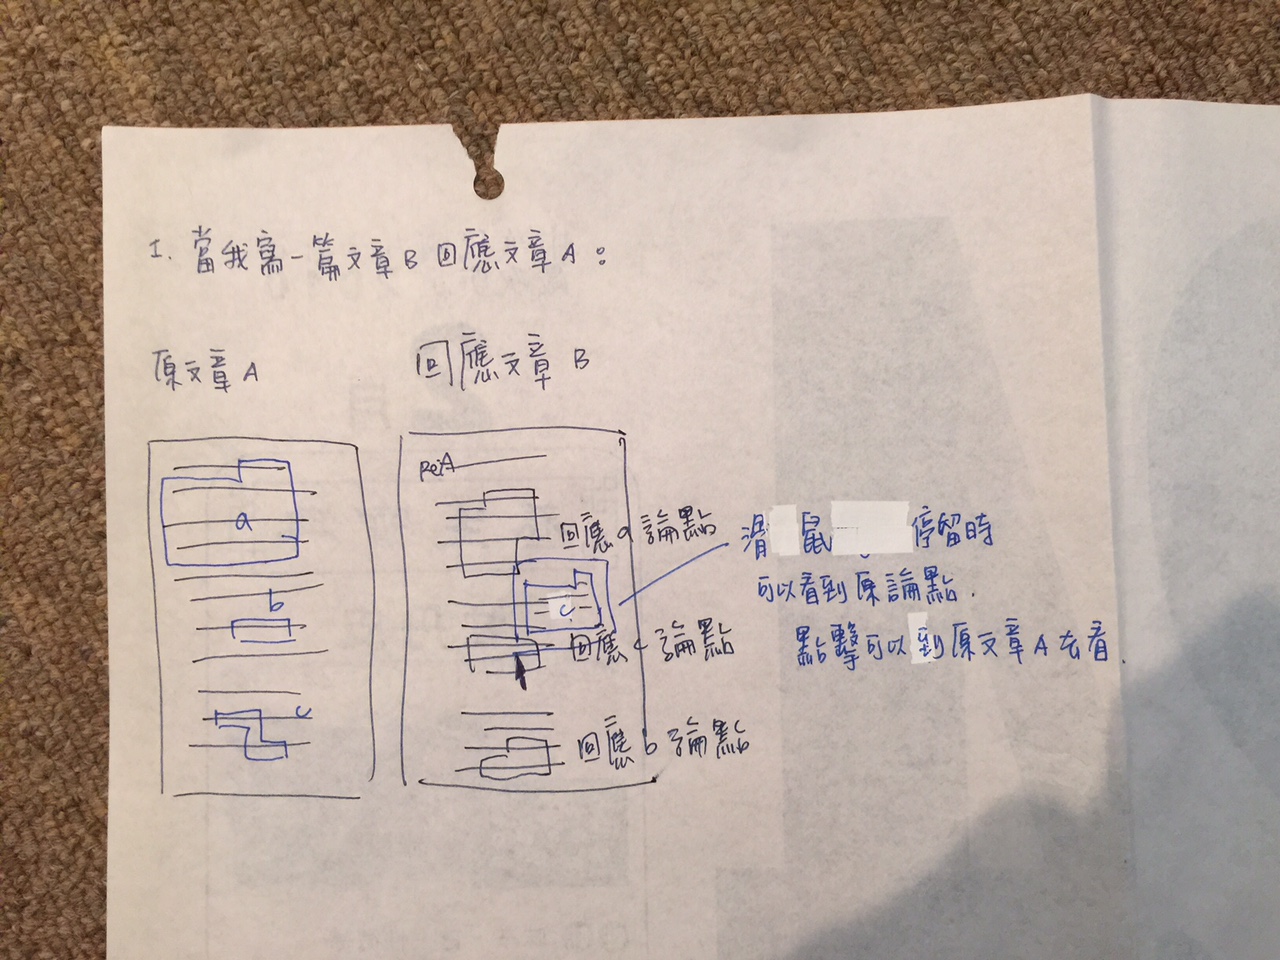 I. 當我寫一篇文章B回應文章A:
原文章A
回應文章B
a
b
c
Re:A
回應a論點
c
回應c論點
回應b論點
滑鼠停留時
可以看到原論點.
點擊可以到原文章A去看.
月